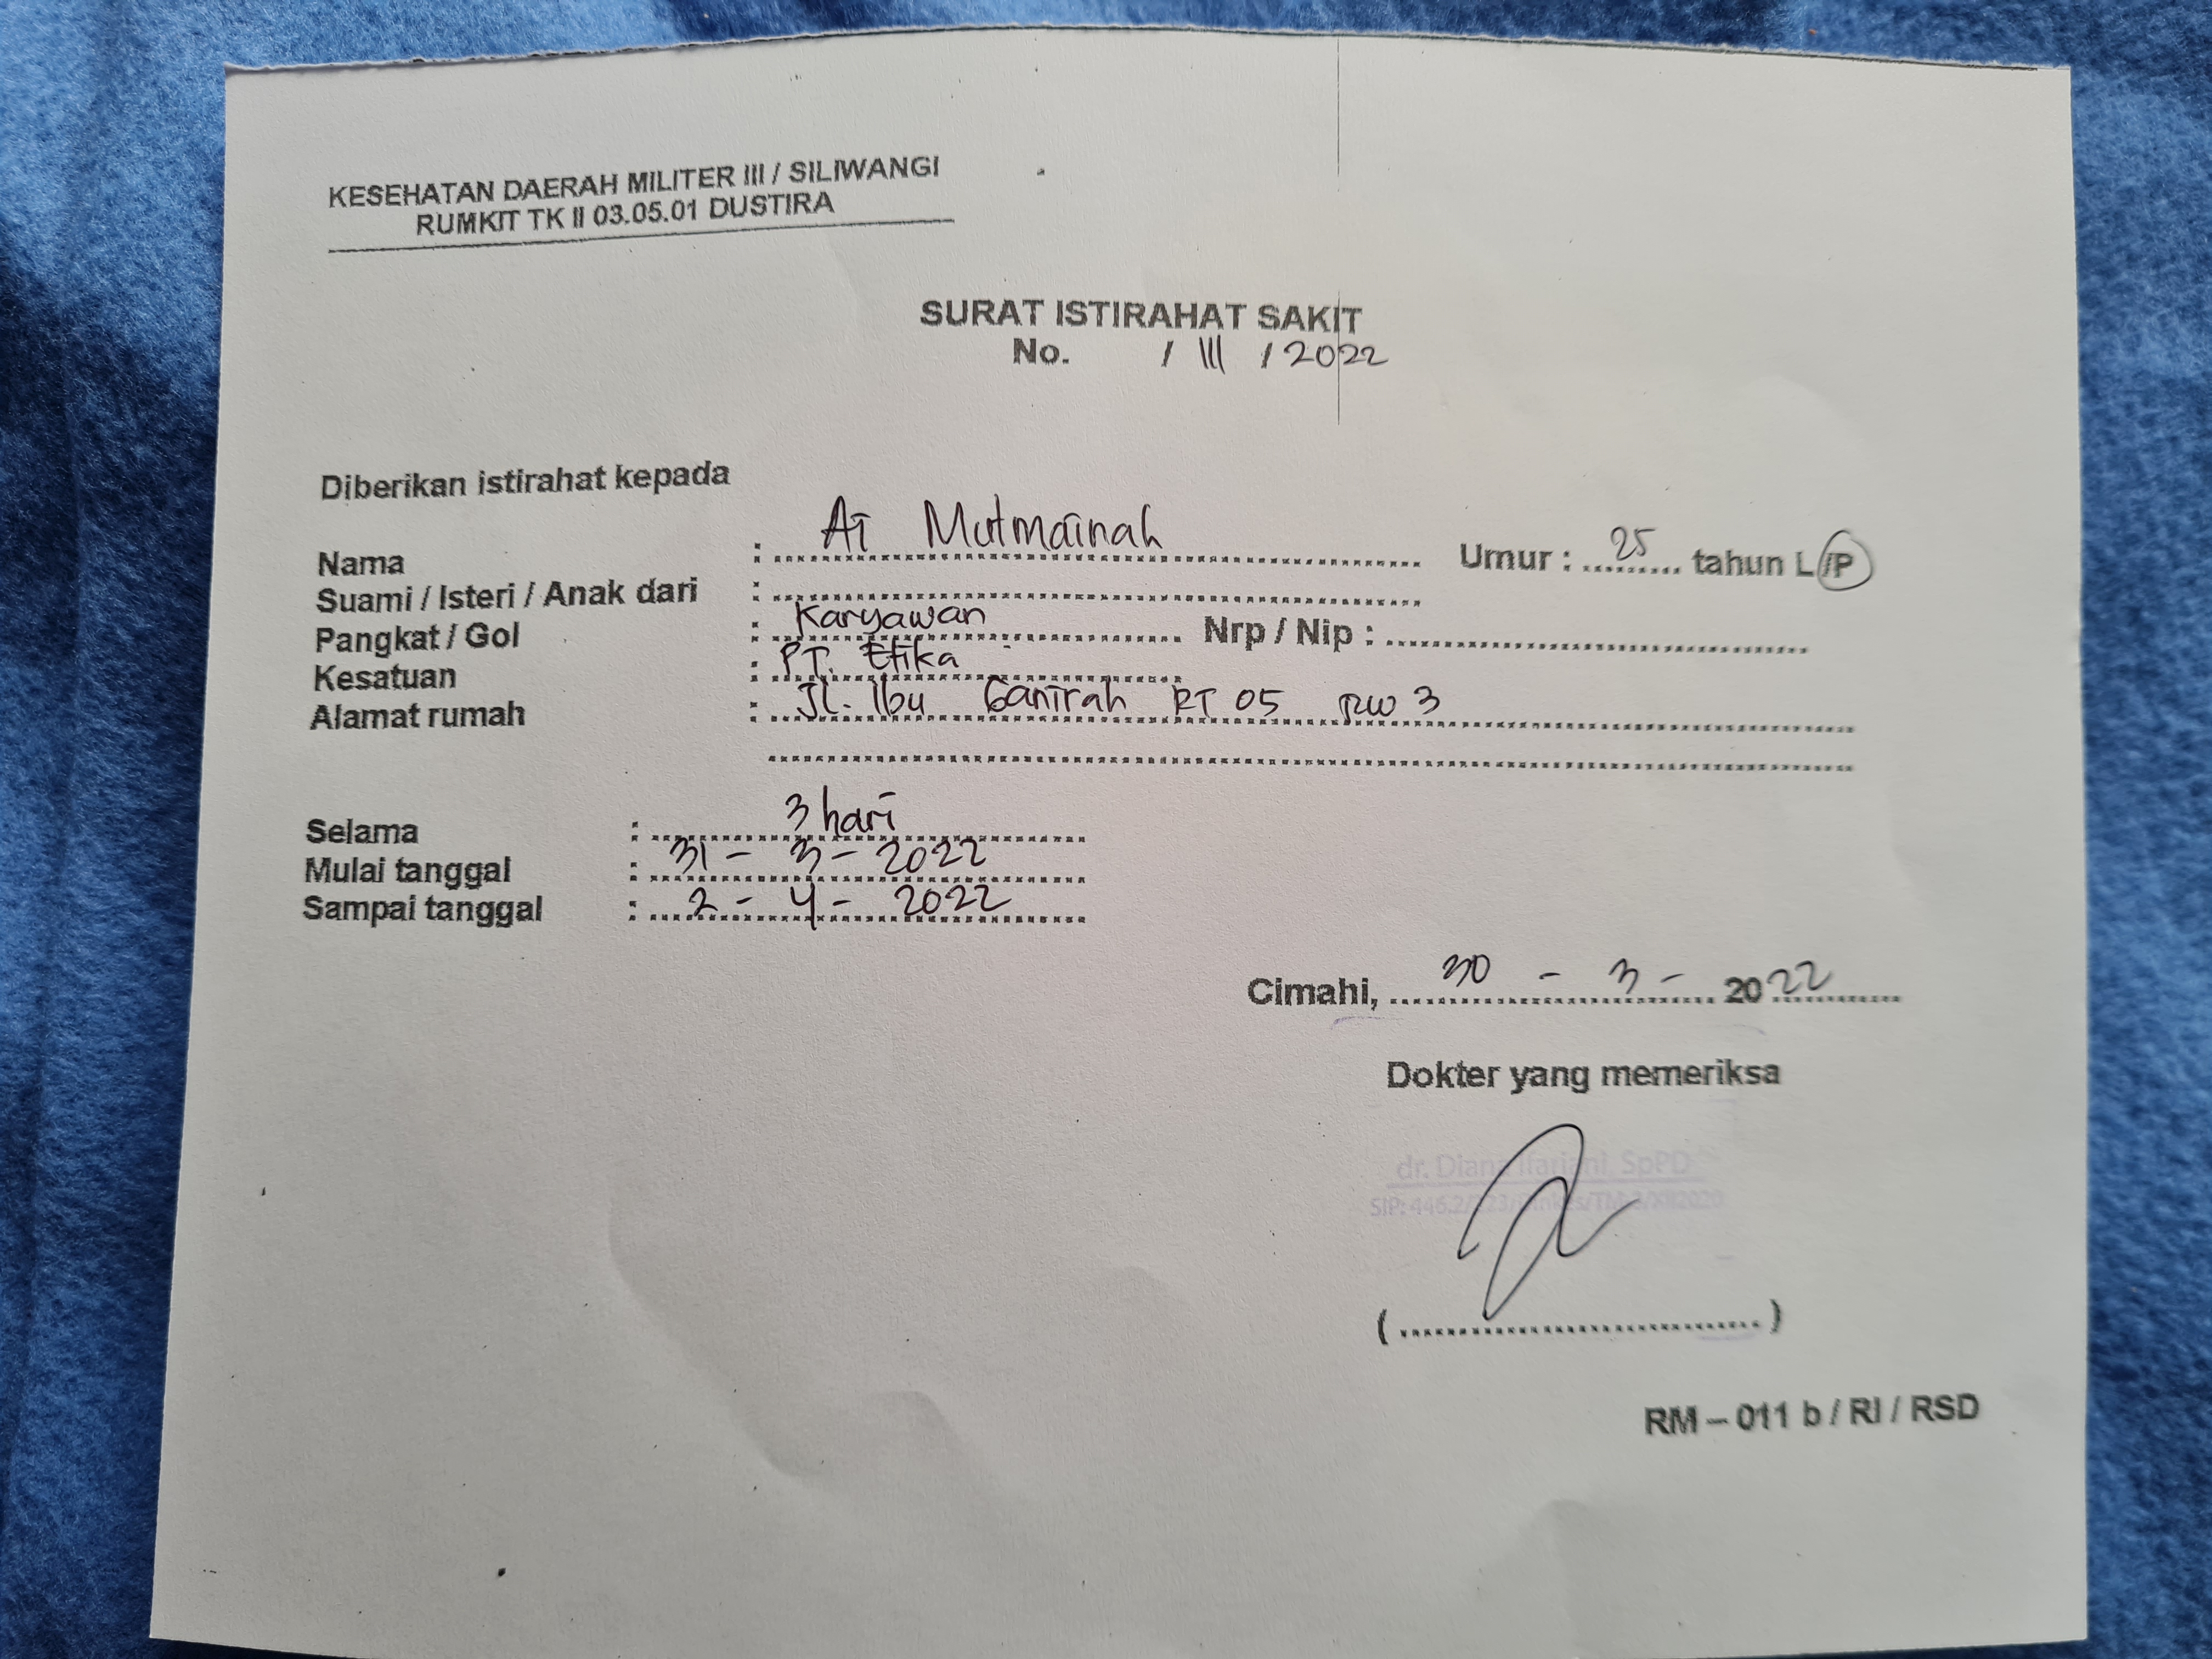 KESEHATAN DAERAH MILITER III / SILIWANGI
RUMKIT TK II 03.05.01 DUSTIRA
SURAT ISTIRAHAT SAKIT
No. / III / 2022
Diberikan istirahat kepada
Nama : Ai Mutmainah Umur : 25 tahun L/P
Suami / Isteri / Anak dari :
Pangkat / Gol : Karyawan Nrp / Nip :
Kesatuan : PT Etika
Alamat rumah : Jl. Ibu Ganirah RT 05 RW 3
Selama : 3 hari
Mulai tanggal : 31 - 3 - 2022
Sampai tanggal : 2 - 4 - 2022
Cimahi, 30 - 3 - 2022
Dokter yang memeriksa
dr. Dian SpPD
( )
RM – 011 b / RI / RSD